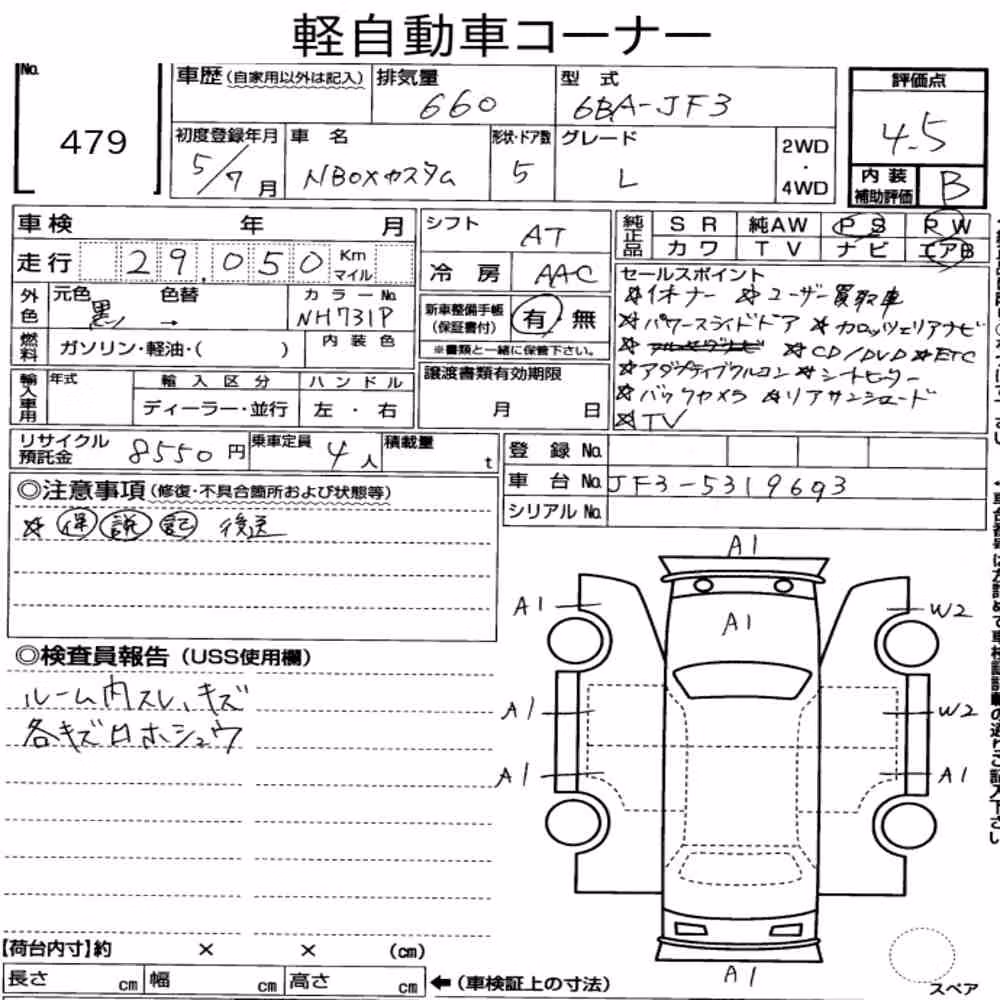 軽自動車コーナー
No. 479
車歴(自家用以外は記入)
排気量 660
型式 6BA-JF3
評価点 4.5
内装補助評価 B
初度登録年月 5/7月
車名 NBOXカスタム
形状・ドア数 5
グレード L
2WD・4WD
車検 年 月
走行 29,050 Km マイル
シフト AT
冷房 AAC
純正品 SR 純AW PS PW
カワ TV ナビ エアB
外色 元色 黒 → 色替
カラーNo. NH731P
内装色
燃料 ガソリン・軽油・( )
新車整備手帳(保証書付) 有 無
※書類と一緒に保管下さい。
輸入車用 年式 輸入区分 ハンドル
ディーラー・並行 左・右
譲渡書類有効期限
月 日
セールスポイント
☆1オーナー ☆ユーザー買取車
☆パワースライドドア ☆カロッツェリアナビ
☆CD/DVD☆ETC
☆アダプティブクルコン☆シートヒーター
☆バックカメラ ☆リアサンシェード
☆TV
リサイクル預託金 8550円
乗車定員 4人
積載量 t
登録No.
車台No. JF3-5319693
シリアルNo.
◎注意事項(修復・不具合箇所および状態等)
☆保 説 記 後送
◎検査員報告(USS使用欄)
ルーム内スレ、キズ
各キズロホシュウ
A1
A1
A1
W2
A1
W2
A1
A1
A1
スペア
【荷台内寸】約 × × (cm)
長さ cm 幅 cm 高さ cm ←(車検証上の寸法)